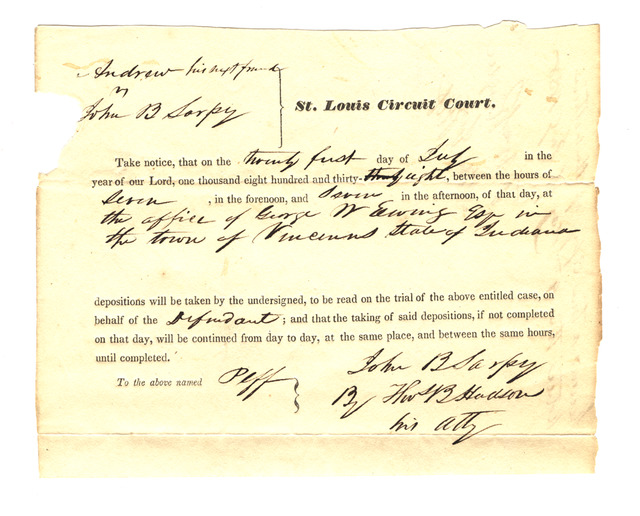 Andrew his next friend
v
John B Sarpy
St. Louis Circuit Court.
Take notice, that on the twenty first day of July in the
year of our Lord, one thousand eight hundred and thirty-eight, between the hours of
Seven , in the forenoon, and Seven in the afternoon, of that day, at
the office of George W Ewing Esq in
the town of Vincenns State of Indiana
depositions will be taken by the undersigned, to be read on the trial of the above entitled case, on
behalf of the Defendant; and that the taking of said depositions, if not completed
on that day, will be continued from day to day, at the same place, and between the same hours,
until completed.
To the above named Plff
John B Sarpy
By Thos B Hudson
his Atty